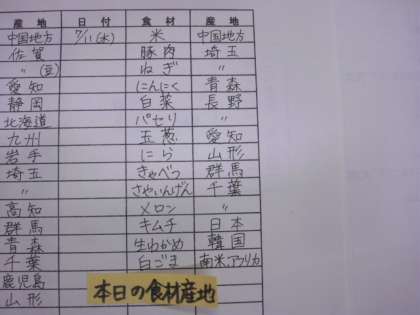 産地 日付 食材 産地
中国地方 7/11(水) 米 中国地方
佐賀 豚肉 埼玉
〃(豆) ねぎ 〃
愛知 にんにく 青森
静岡 白菜 長野
北海道 パセリ 〃
九州 玉葱 愛知
岩手 にら 山形
埼玉 きゃべつ 群馬
〃 さやいんげん 千葉
高知 メロン 〃
群馬 キムチ 日本
青森 生わかめ 韓国
千葉 白ごま 南米,アフリカ
鹿児島
山形
本日の食材産地